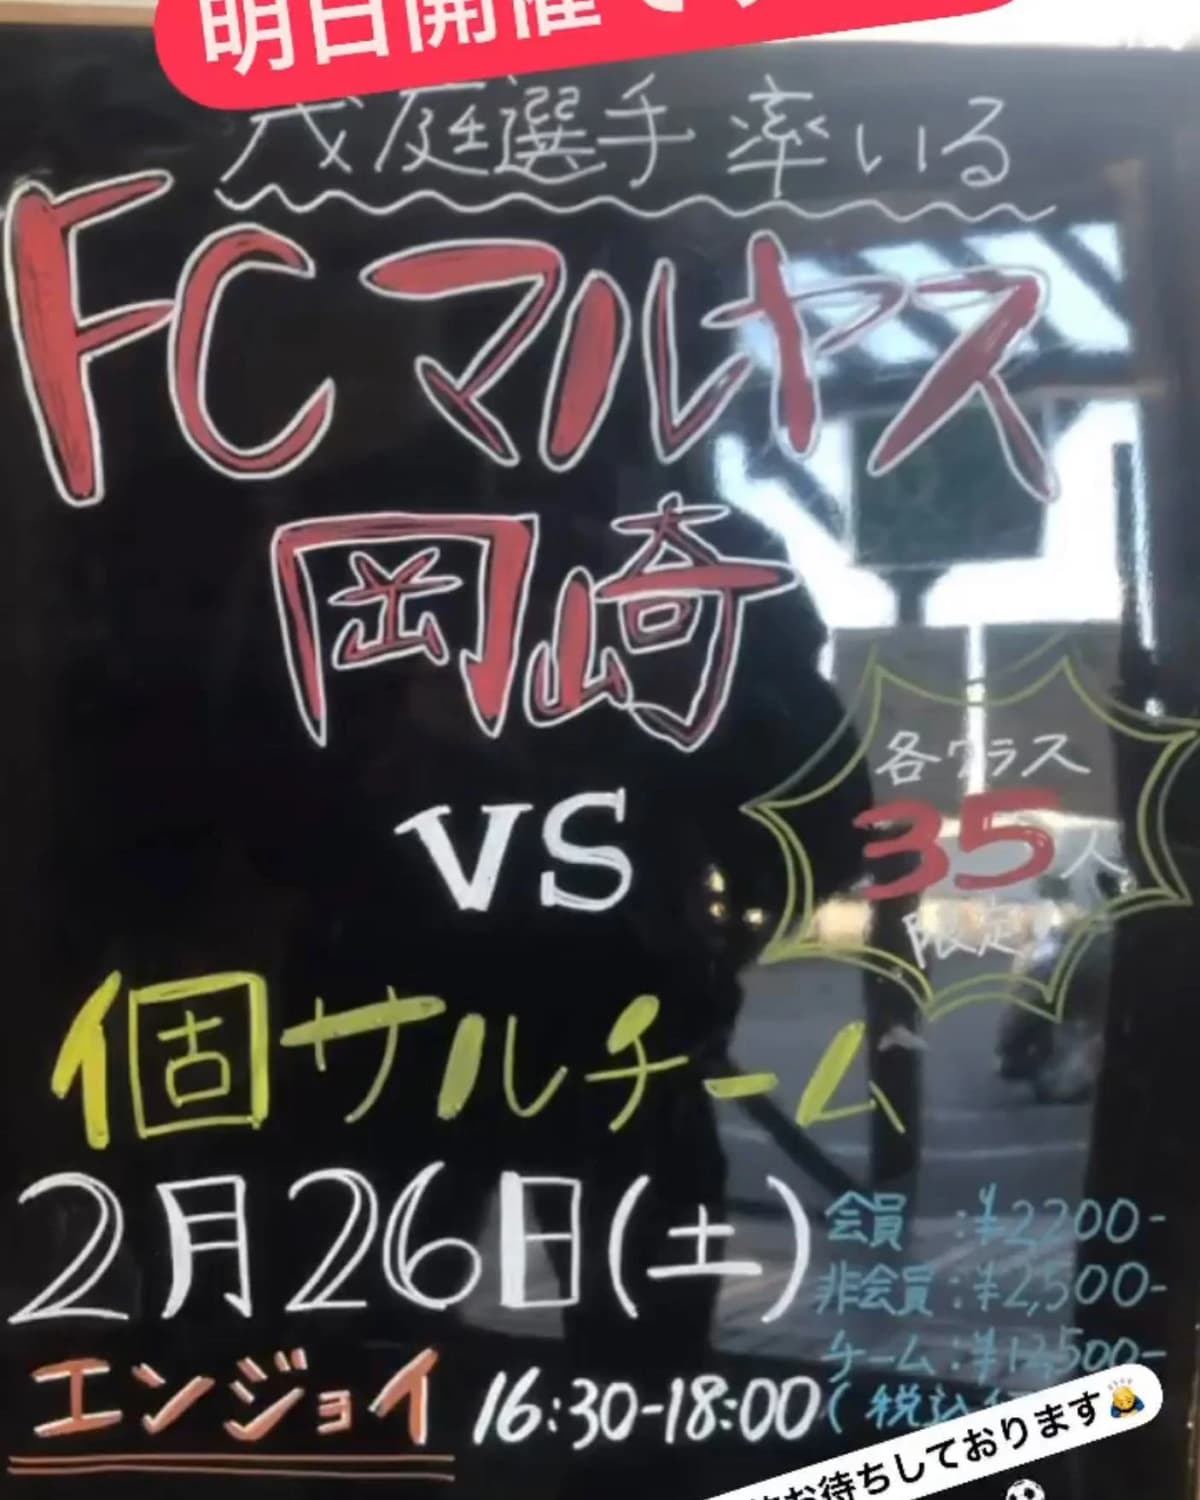 明日開催で
茂庭選手率いる
FCマルヤス
岡崎
VS
各クラス
35人
限定
個サルチーム
2月26日(土)
会員:¥2200-
非会員:¥2,500-
チーム:¥12,500-
(税込
エンジョイ 16:30-18:00
お待ちしております🙇